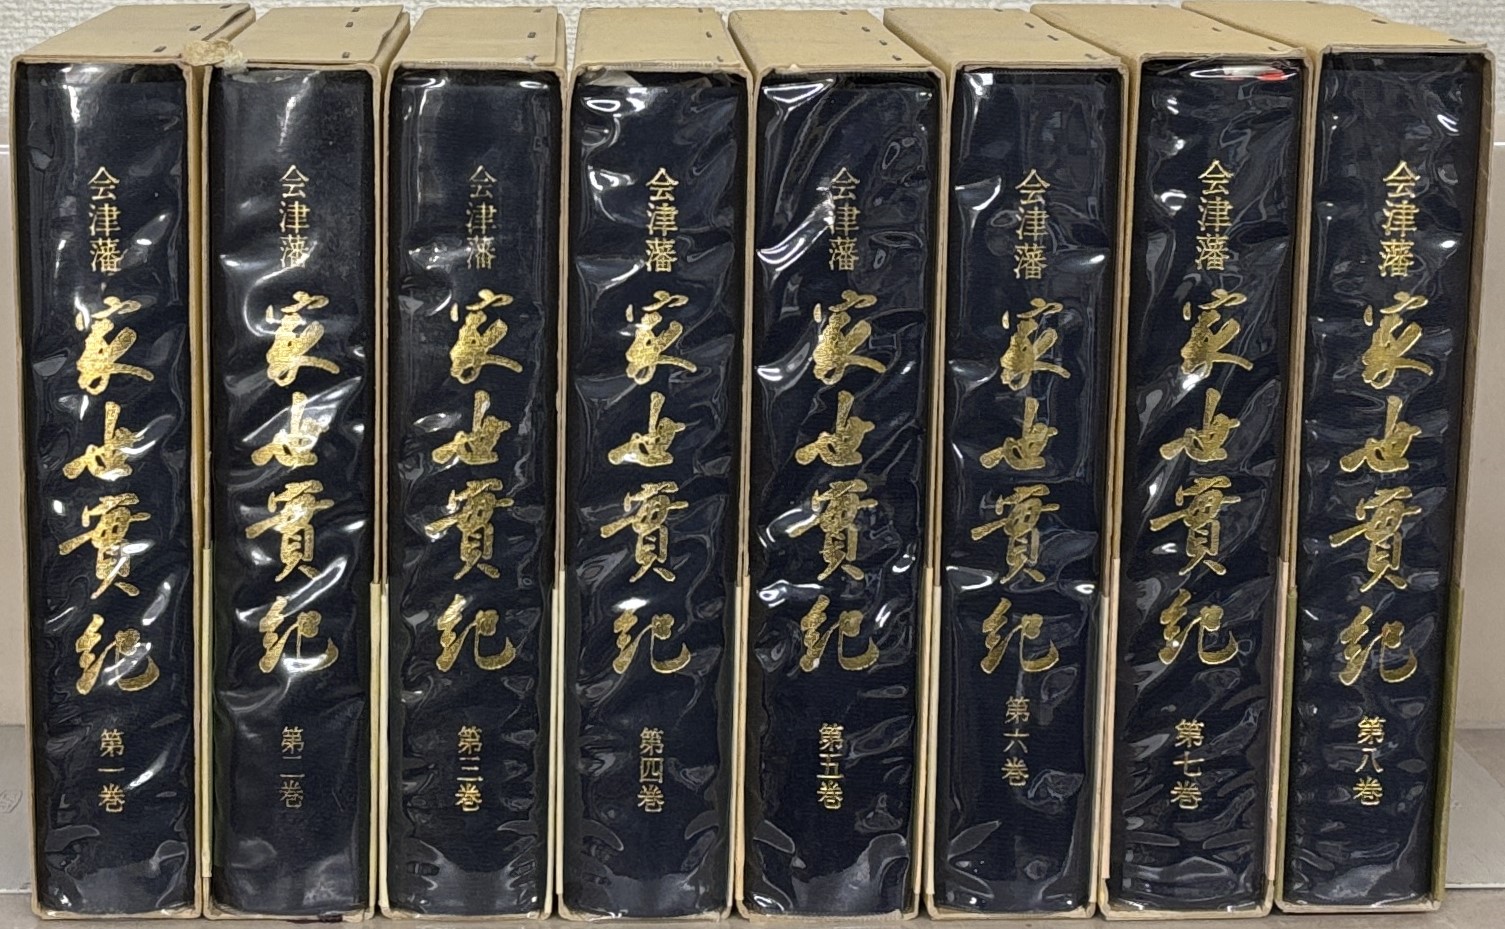 会津藩 家世實紀 第一巻
会津藩 家世實紀 第二巻
会津藩 家世實紀 第三巻
会津藩 家世實紀 第四巻
会津藩 家世實紀 第五巻
会津藩 家世實紀 第六巻
会津藩 家世實紀 第七巻
会津藩 家世實紀 第八巻